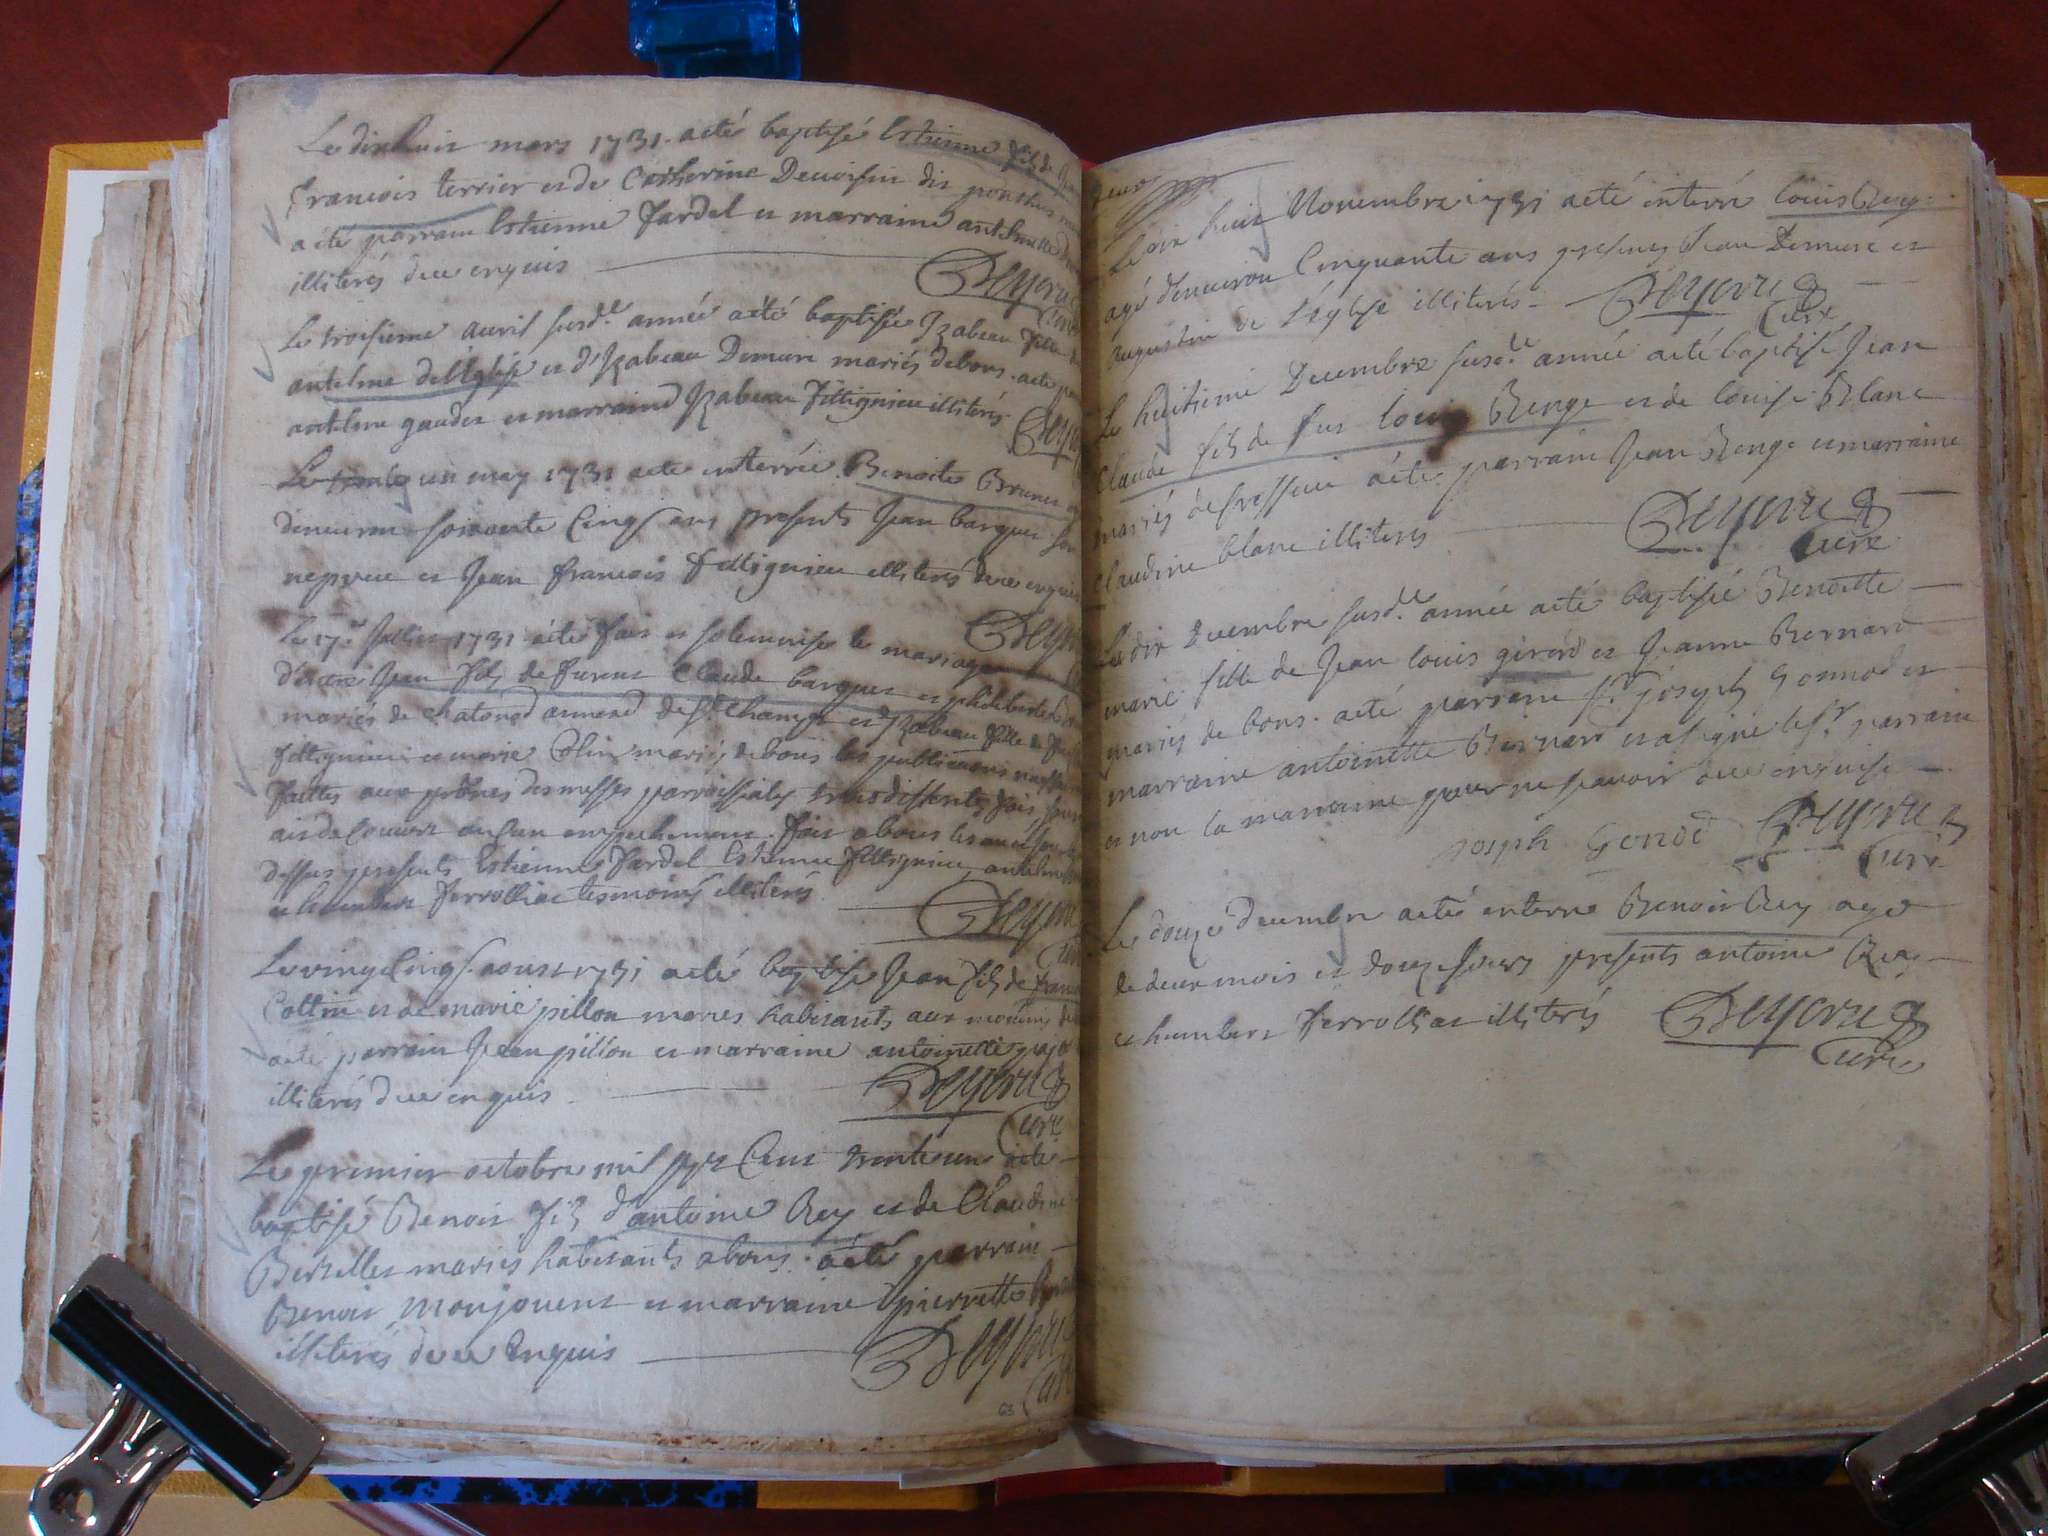 Le dixhuit mars 1731. a eté baptisé Estienne fils de
francois terrier et de Catherine Deuoisin dit
a eté parrain Estienne fardel et marraine
illiterés de ce enquis
Deyorue
Curé
Le troisieme auril susd.e année a eté baptisée Izabeau fille
antelme de l'Eglise et d'Izabeau Demure mariés de bons. a eté
antelme gaudet et marraine Izabeau fittignieu illiterés
Le trente un may 1731 a eté enterrée Benoite Brunet
d'enuiron soixante Cinq ans presents Jean barquet son
nepueu et Jean francois fittignieu illiterés de ce enquis
Le 17.e Juillet 1731 a eté fait et solemnisé le mariage
Jean fils de furent Claude barquet et philiberte
mariés de chatonod annexe de s.t champt et Izabeau fille de
fittignieu et marie Colin mariés de bons les publications
faittes aux prônes des messes parroissiales trois differentes fois sans
auoir decouuert aucun empechement. fait a bons les an et jour
dessus presents Estienne fardel Estienne fittignieu, antelme
et humbert ferrolliet tesmoins illiterés
Deyorue
Le vingt Cinq aoust 1731 a eté baptisé Jean fils de francois
Cottin et de marie pillon mariés habitants aux moulins
a eté parrain Jean pillon et marraine antoinette
illiterés de ce enquis
Deyorue
Curé
Le premier octobre mil sept Cent trente un a eté
baptisé Benoit fils d'antoine Rey et de Claudine
Berthellet mariés habitants a bons. a eté parrain
Benoit monjouent et marraine pierrette
illiterés de ce Enquis
Deyorue
Curé
63
Le dix huit Nouembre 1731 a eté enterré louis Reng
agé d'enuiron Cinquante ans presents Jean Demure et
augustin de L'église illiterés
Deyorue
Curé
Le huitieme Decembre susd.e année a eté baptisé Jean
Claude fils de fut louis Renge et de louise Blanc
mariés de fressieu a eté parrain Jean Renge et marraine
Claudine blanc illiterés
Deyorue
Curé
Le dix Decembre susd.e année a eté baptisée Benoitte
marie fille de Jean louis girerd et Jeanne Bernard
mariés de bons. a eté parrain s.r joseph Gonnod et
marraine antoinette Bernard et a signé le s.r parrain
et non la marraine pour ne sçauoir de ce enquise
joseph Gonod
Deyorue
Curé
Le douze decembre a eté enterré Benoit Rey agé
de deux mois et douze jours presents antoine Rey
et humbert ferrolliet illiterés
Deyorue
Curé